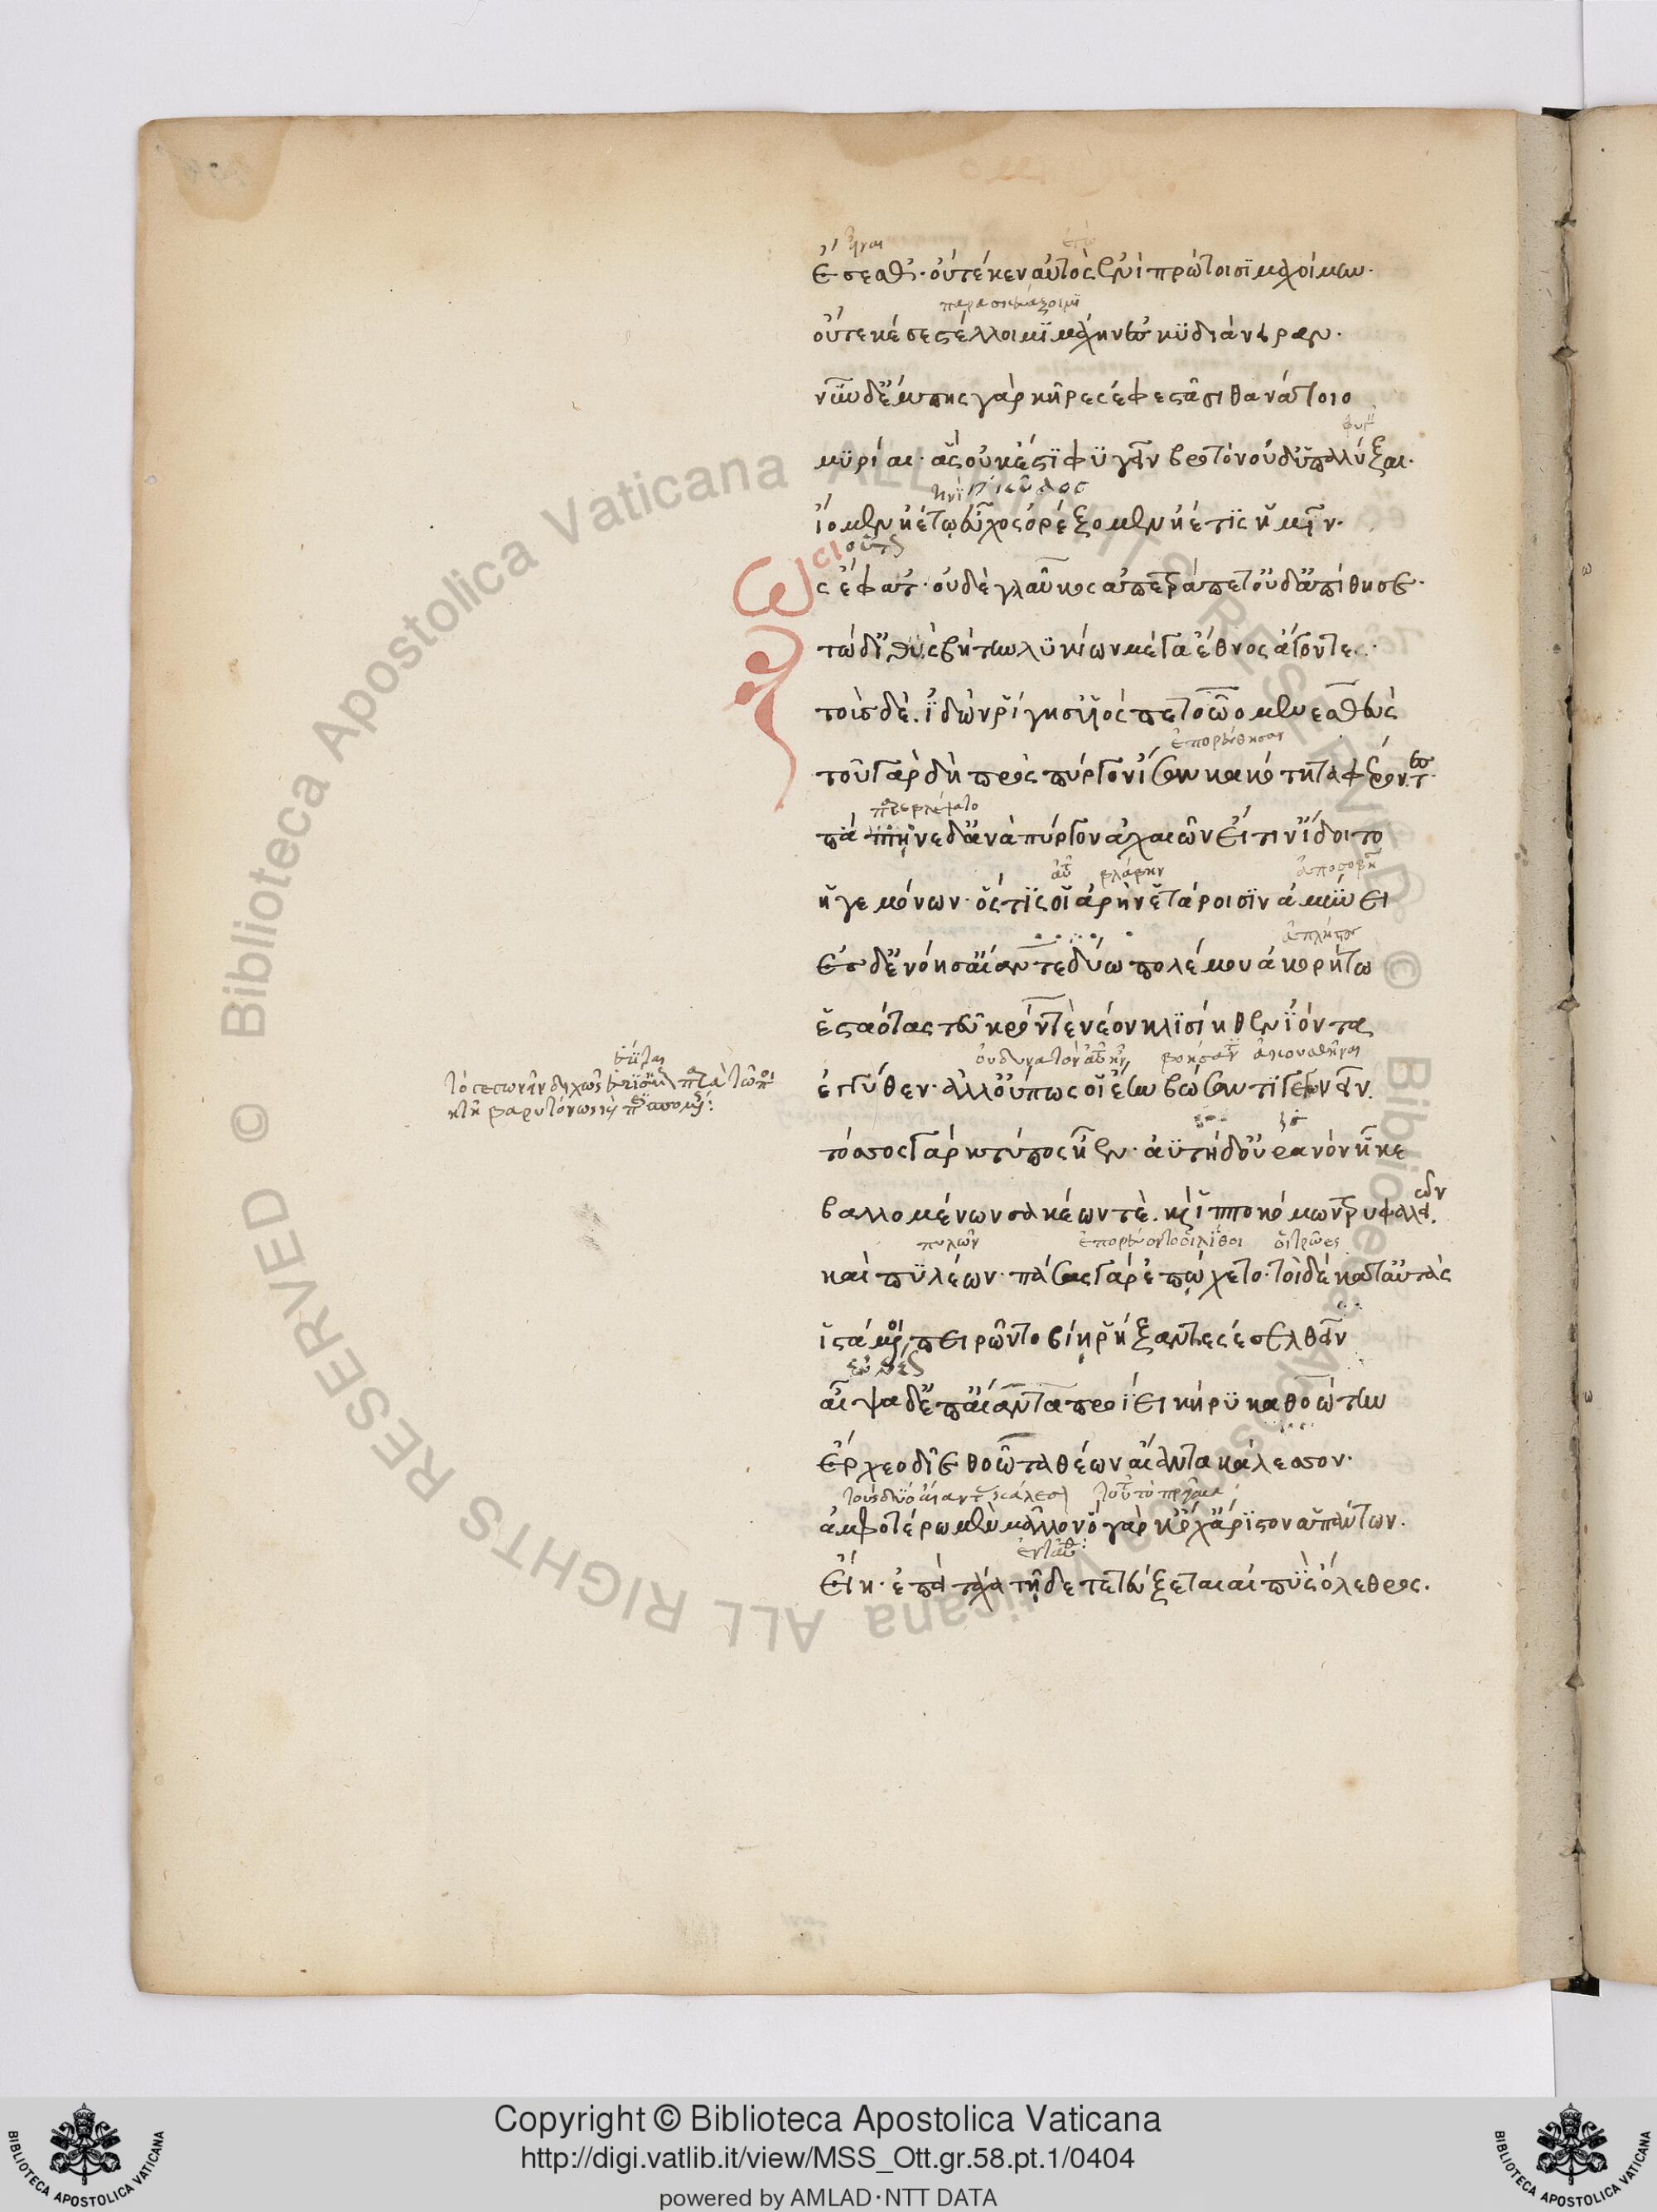 ἔσεσθ'· οὔτέ κεν αὐτὸς ἐνὶ πρώτοισι μαχοίμην·
παρασκευάζοιμι
οὔτέ κέ σε στέλλοιμι μάχην ἐς κυδιάνειραν·
νῦν δ' ἔμπης γὰρ κῆρες ἐφεστᾶσι θανάτοιο
μυρίαι· ἃς οὐκ ἔστι φυγεῖν βροτὸν οὐδ' ὑπαλύξαι·
ἴομεν ἠέ τῳ εὖχος ὀρέξομεν ἠέ τις ἡμῖν·
οὕτως
Ὣς ἔφατ'· οὐδὲ γλαῦκος ἀπετράπετ' οὐδ' ἀπίθησε·
τὼ δ' ἰθὺς βήτην λυκίων μέγα ἔθνος ἄγοντες·
τοὺς δὲ ἰδὼν ῥίγησ' υἱὸς πετεῶο μενεσθεύς
ἐπορεύθησαν
τοῦ γὰρ δὴ πρὸς πύργον ἴσαν κακότητα φέροντες·
πάπτηνε δ' ἀνὰ πύργον ἀχαιῶν εἴ τιν' ἴδοιτο
βλάβην
ἡγεμόνων· ὅς τις οἱ ἀρὴν ἑτάροισιν ἀμύνει
ἐς δ' ἐνόησ' αἴαντε δύω πολέμου ἀκορήτω
ἑσταότας τεῦκρόν τε νέον κλισίηθεν ἰόντα
ἐγγύθεν· ἀλλ' οὔπως οἱ ἔην βώσαντι γεγωνεῖν·
τόσσος γὰρ κτύπος ἦεν· ἀϋτὴ δ' οὐρανὸν ἧκε
βαλλομένων σακέων τε· καὶ ἱπποκόμων τρυφαλειῶν
πυλῶν ἐπορεύοντο οἱ λίθοι οἱ τρῶες
καὶ πυλέων· πάσας γὰρ ἐπῴχετο· τοὶ δὲ κατ' αὐτὰς
ἱστάμενοι πειρῶντο βίῃ ῥήξαντες ἐσελθεῖν
εὐθέως
αἶψα δ' ἐπ' αἴαντα προΐει κήρυκα θοώτην
ἔρχεο δῖε θοῶτα θέων αἴαντα κάλεσσον·
ἀμφοτέρω μὲν μᾶλλον ὃ γάρ κ' ὄχ' ἄριστον ἁπάντων·
εἴη· ἐπεὶ τάχα τῇδε τετεύξεται αἰπὺς ὄλεθρος·
Copyright © Biblioteca Apostolica Vaticana
http://digi.vatlib.it/view/MSS_Ott.gr.58.pt.1/0404
powered by AMLAD·NTT DATA